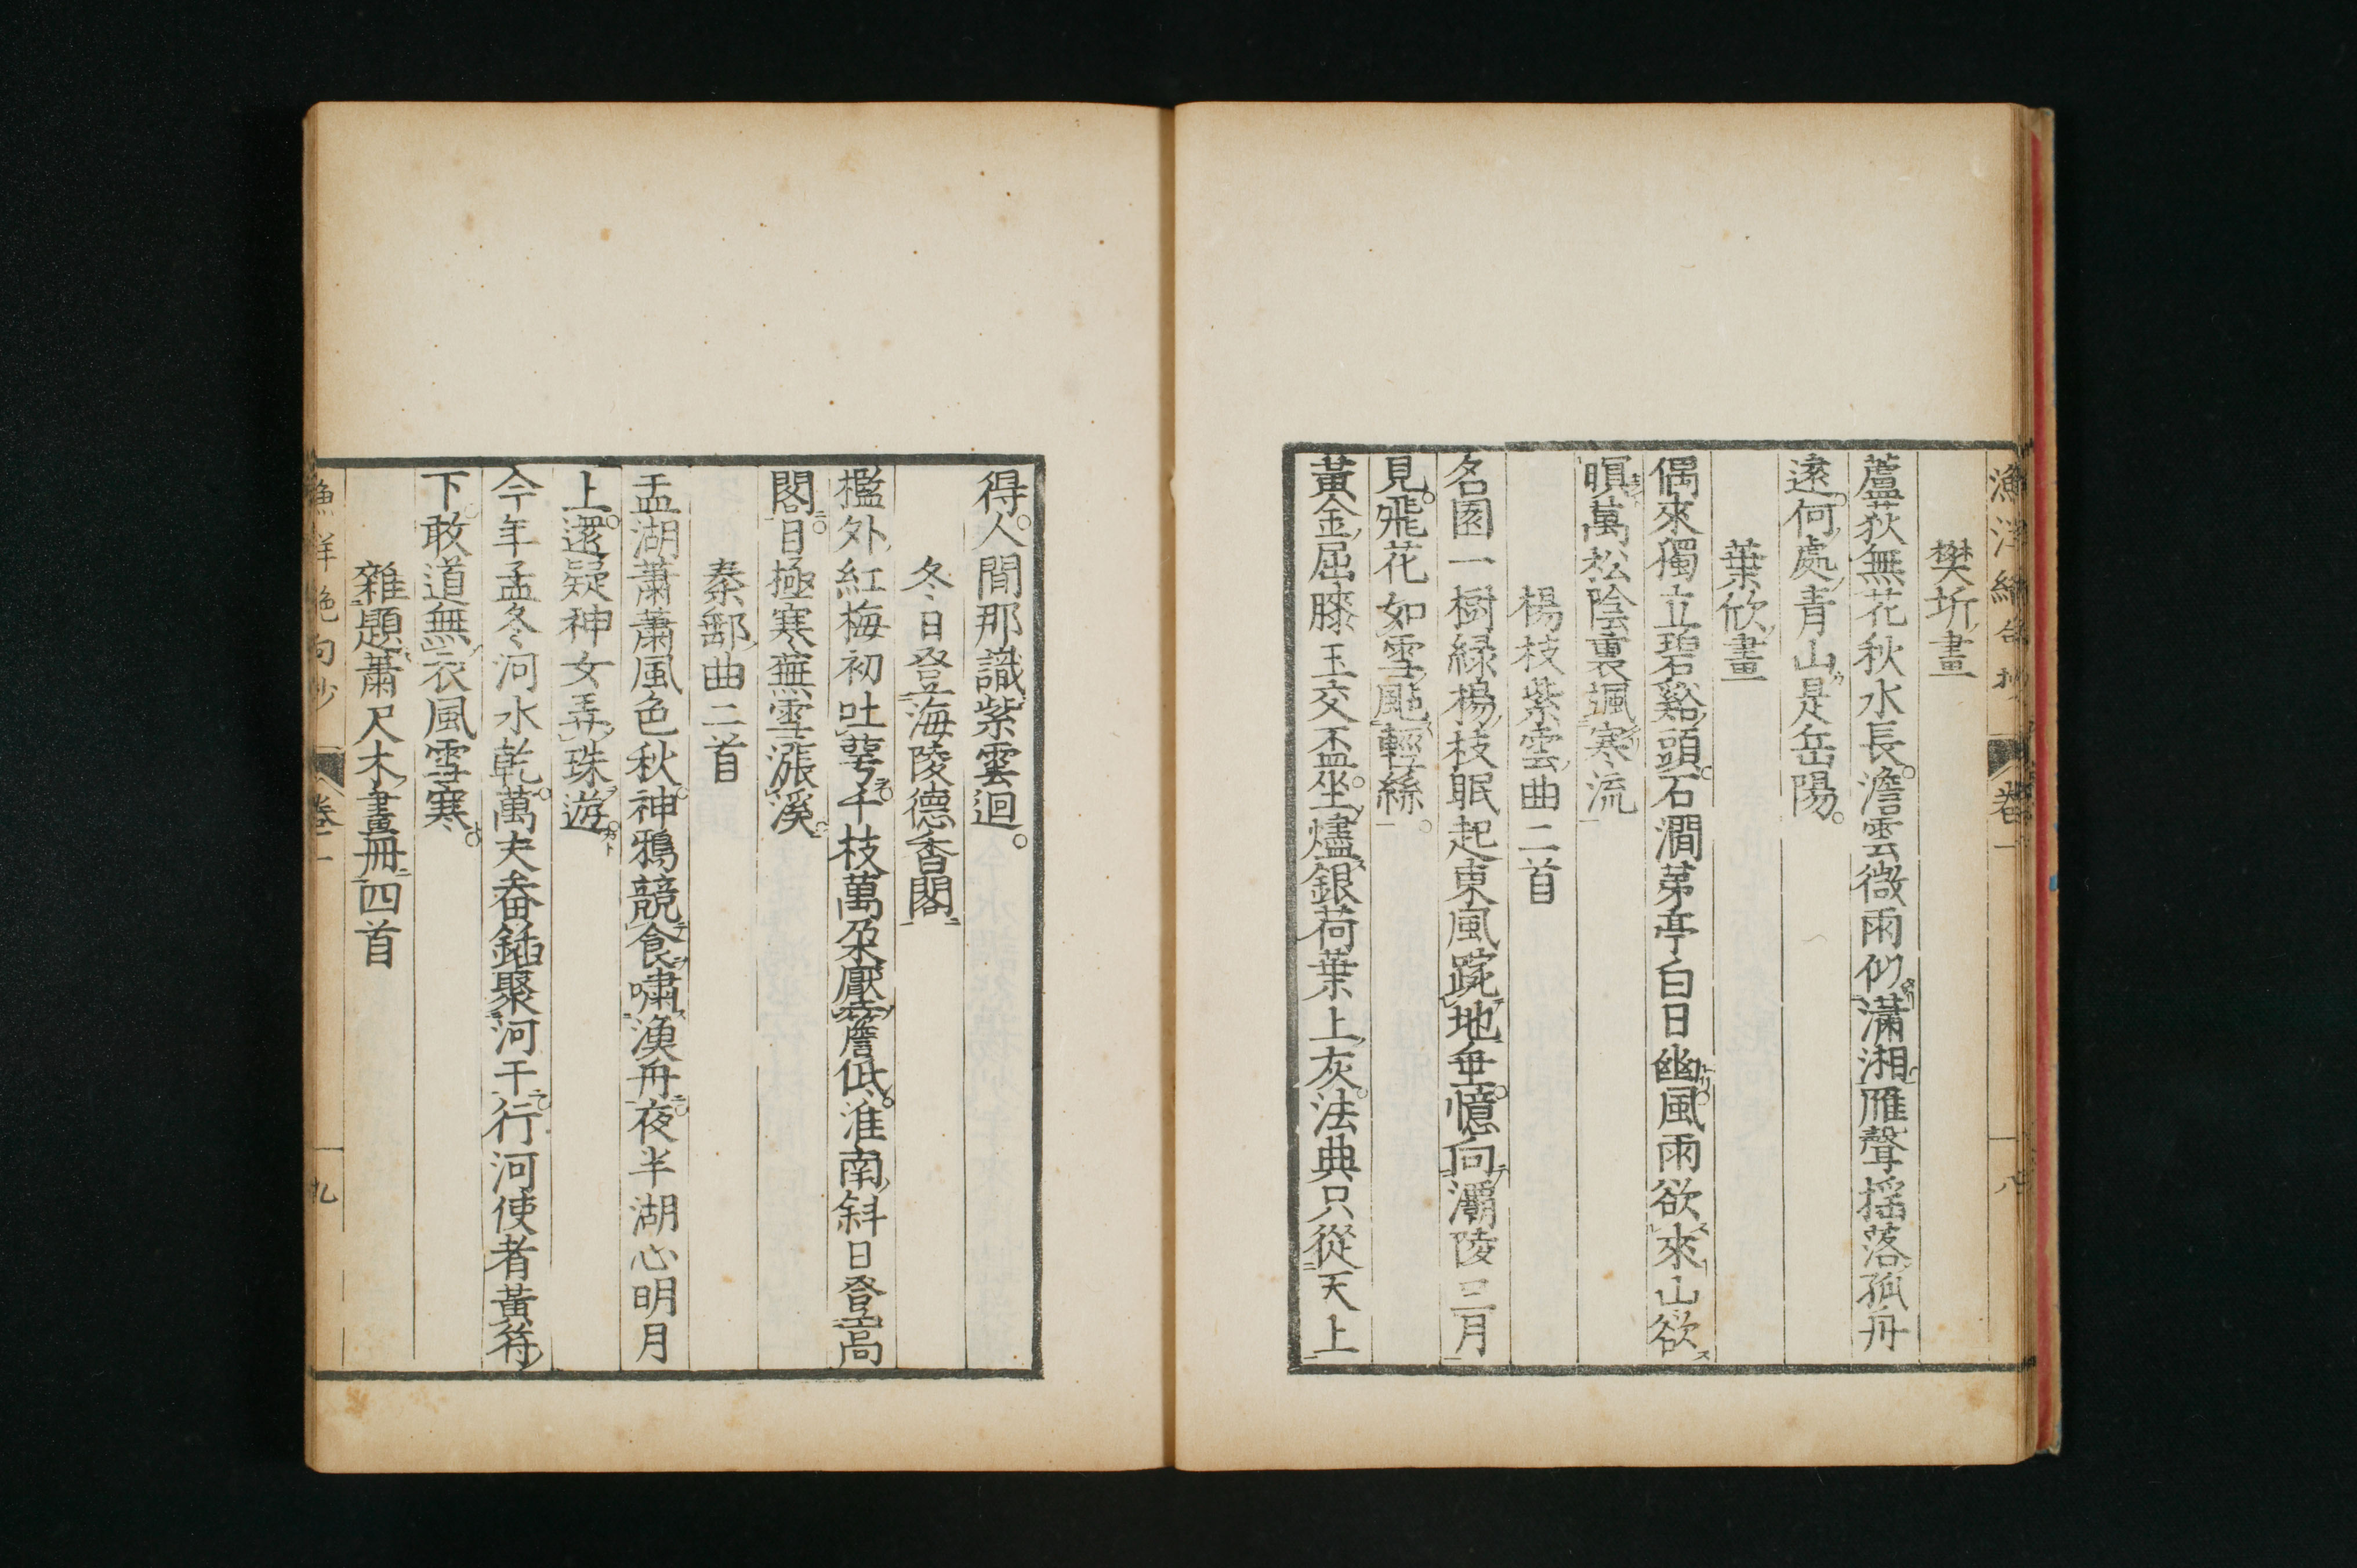 漁洋絶句抄 卷一 八
樊圻畫
蘆荻無花秋水長澹雲微雨似瀟湘雁聲搖落孤舟
遠何處青山是岳陽
葉欣畫
偶來獨立碧谿頭石澗茅亭白日幽風雨欲來山欲
暝萬松陰裏颯寒流
楊枝紫雲曲二首
名園一樹緑楊枝眠起東風踠地垂憶向灞陵三月
見飛花如雪颭輕絲
黃金屈膝玉交盃坐燼銀荷葉上灰法典只從天上
得人間那識紫雲迴
冬日登海陵德香閣
檻外紅梅初吐萼千枝萬朶壓簷低淮南斜日登高
閣目極寒蕪雪漲溪
秦郵曲二首
盂湖蕭蕭風色秋神鴉競食嘯漁舟夜半湖心明月
上還疑神女弄珠遊
今年孟冬河水乾萬夫畚鍤聚河干行河使者黃符
下敢道無衣風雪寒
雜題蕭尺木畫冊四首
漁洋絶句抄 卷一 九